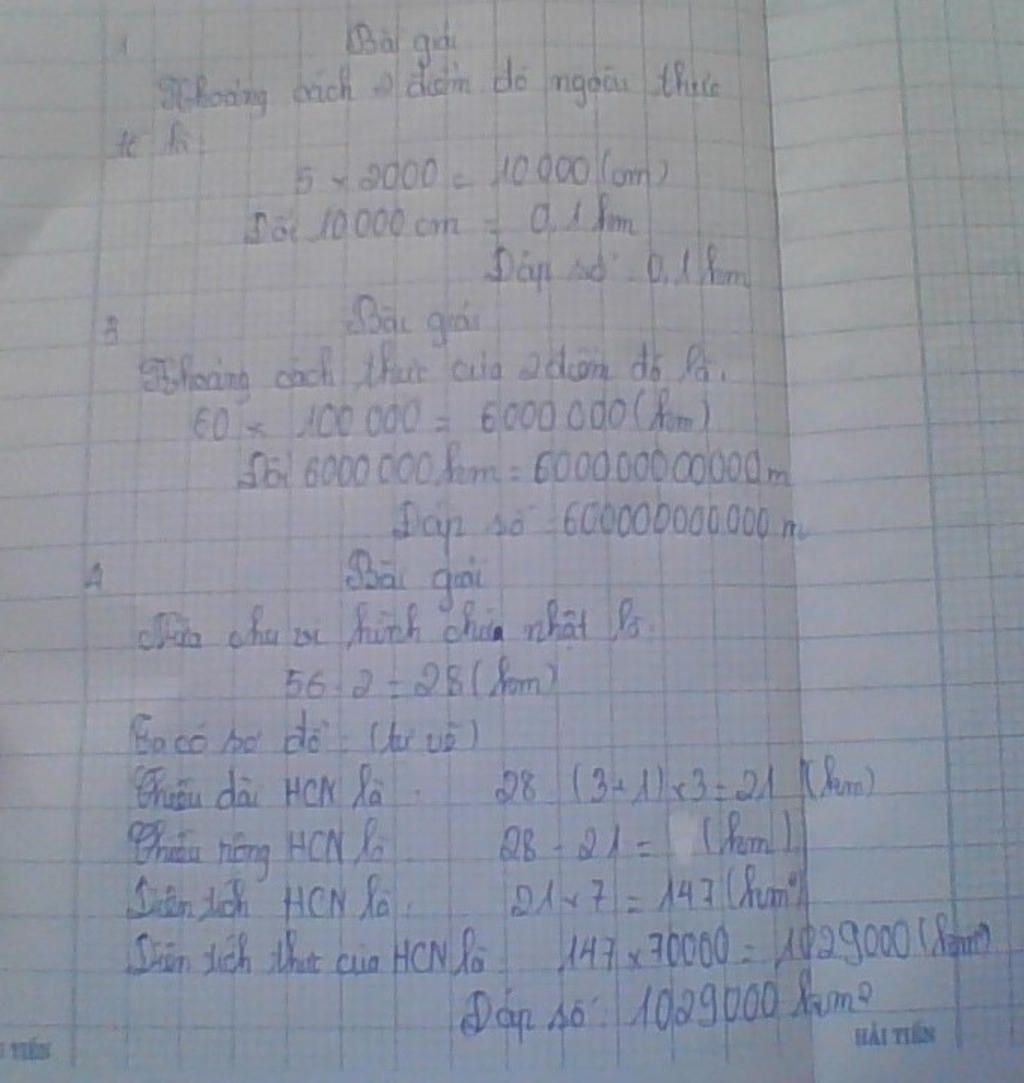 1 Bài giải
Khoảng cách 2 điểm đó ngoài thực
tế là:
5 × 2000 = 10 000 (cm)
Đổi 10 000 cm = 0,1 km
Đáp số: 0,1 km
3 Bài giải
Khoảng cách thực của 2 điểm đó là.
60 × 100 000 = 6000 000 (km)
Đổi 6000 000 km = 600000000000 m
Đáp số: 600000000000 m
Bài giải
Nửa chu vi hình chữ nhật là.
56 : 2 = 28 (km)
Ta có sơ đồ: (tự vẽ)
Chiều dài HCN là: 28 : (3 + 1) × 3 = 21 (km)
Chiều rộng HCN là: 28 - 21 = (km)
Diện tích HCN là: 21 × 7 = 147 (km²)
Diện tích thực của HCN là: 147 × 70000 = 1029000 (km²)
Đáp số: 1029000 km²
TIẾN
HẢI TIẾN